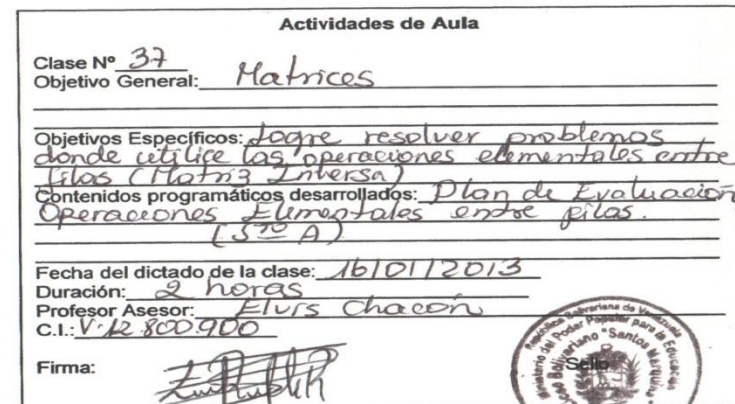 Actividades de Aula
Clase Nº 37
Objetivo General: Matrices
Objetivos Específicos: Logre resolver problemas
donde utilice las operaciones elementales entre
filas (Matriz Inversa)
Contenidos programáticos desarrollados: Plan de Evaluación
Operaciones Elementales entre filas.
(5to A)
Fecha del dictado de la clase: 16/01/2013
Duración: 2 horas
Profesor Asesor: Elvis Chacón
C.I.: V-12.800.900
Firma:
Sello
República Bolivariana de Venezuela
Ministerio del Poder Popular para la Educación
Bolivariano "Santos Marquina"